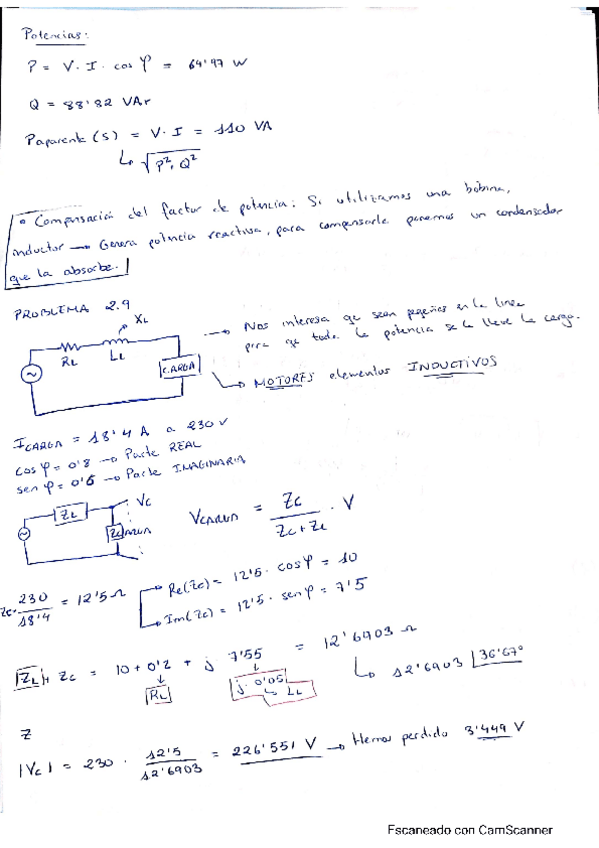 Potencias:
P = V · I · cos φ = 64'97 W
Q = 88'82 VAr
Paparente (S) = V · I = 110 VA
↳ √P², Q²
• Compensación del factor de potencia: Si utilizamos una bobina,
inductor → Genera potencia reactiva, para compensarle ponemos un condensador
que la absorbe.
PROBLEMA 2.9
XL
RL LL
CARGA
→ Nos interesa que sean pequeñas en la línea
para que toda la potencia se la lleve la carga.
→ MOTORES elementos INDUCTIVOS
ICARGA = 18'4 A a 230 V
cos φ = 0'8 → Parte REAL
sen φ = 0'6 → Parte IMAGINARIA
ZL
VC
ZCARGA
VCARGA = Zc / Zc + ZL · V
Zc = 230 / 18'4 = 12'5 Ω
Re(Zc) = 12'5 · cos φ = 10
Im(Zc) = 12'5 · sen φ = 7'5
ZL + Zc = 10 + 0'2 + j 7'55 = 12'6903 Ω
RL
j 0'05
↳ LL
↳ 12'6903 |36'67°
Z
|Vc| = 230 · 12'5 / 12'6903 = 226'551 V → Hemos perdido 3'449 V
Escaneado con CamScanner